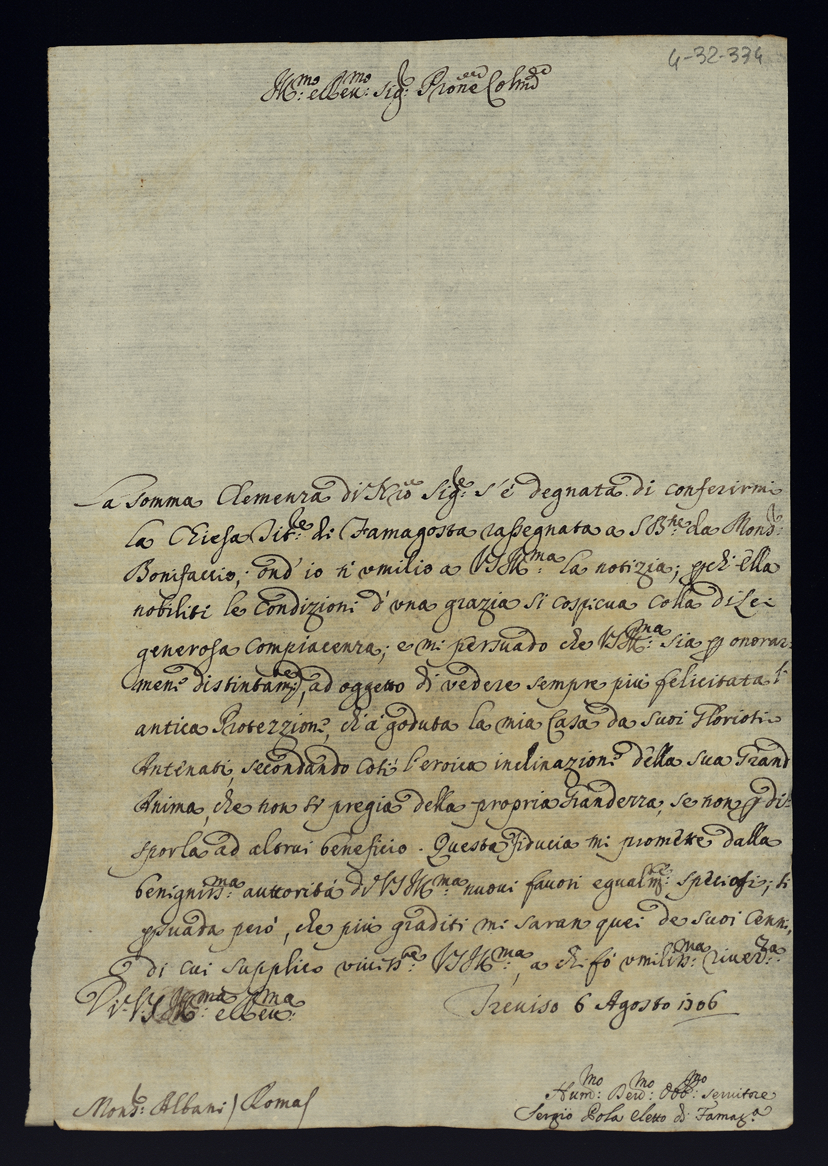 4-32-334
Ill:mo e Rev:mo Sig:r Prone Colmo
La somma Clemenza di N:ro Sig:re s'è degnata di conferirmi
la Chiesa Tit:re di Famagosta rassegnata a S B:ne da Mons:r
Bonifaccio, ond' io n' umilio a VS Ill:ma la notizia; pchè ella
nobiliti le condizioni d' una grazia sì cospicua colla di Lei
generosa compiacenza; e mi persuado che VS Ill:ma sia p onorar-
mene distintam:te, ad oggetto di vedere sempre più felicitata l'
antica Protezzione, ch' à goduta la mia Casa da suoi Gloriosi
Antenati, secondando così l'eroica inclinazione della sua Grand'
Anima, che non si pregia della propria Grandezza, se non p di-
sporla ad altrui beneficio. Questa fiducia mi promette dalla
benigniss:ma auttorità di VS Ill:ma nuovi favori egualm:te speciosi; si
psuada però, che più graditi mi saran quei de suoi Cenni,
di cui supplico viviss:te VS Ill:ma, a chi fò umiliss:ma river:za
Di VS Ill:ma e Rev:ma
Treviso 6 Agosto 1706
Hum:mo Dev:mo Obb:mo servitore
Sergio Pola eletto di Famag:a
Mons:r Albani / Roma /